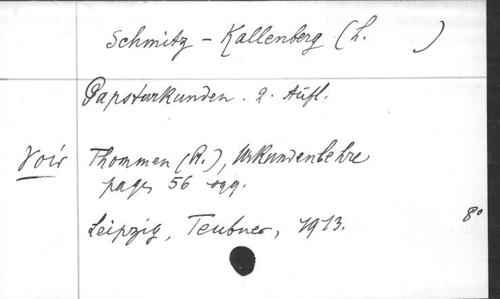 Schmitz - Kallenberg (L. )
Papsturkunden. 2. Aufl.
Voir Thommen (R.), Urkundenlehre
pages 56 sqq.
Leipzig, Teubner, 1913. 8°